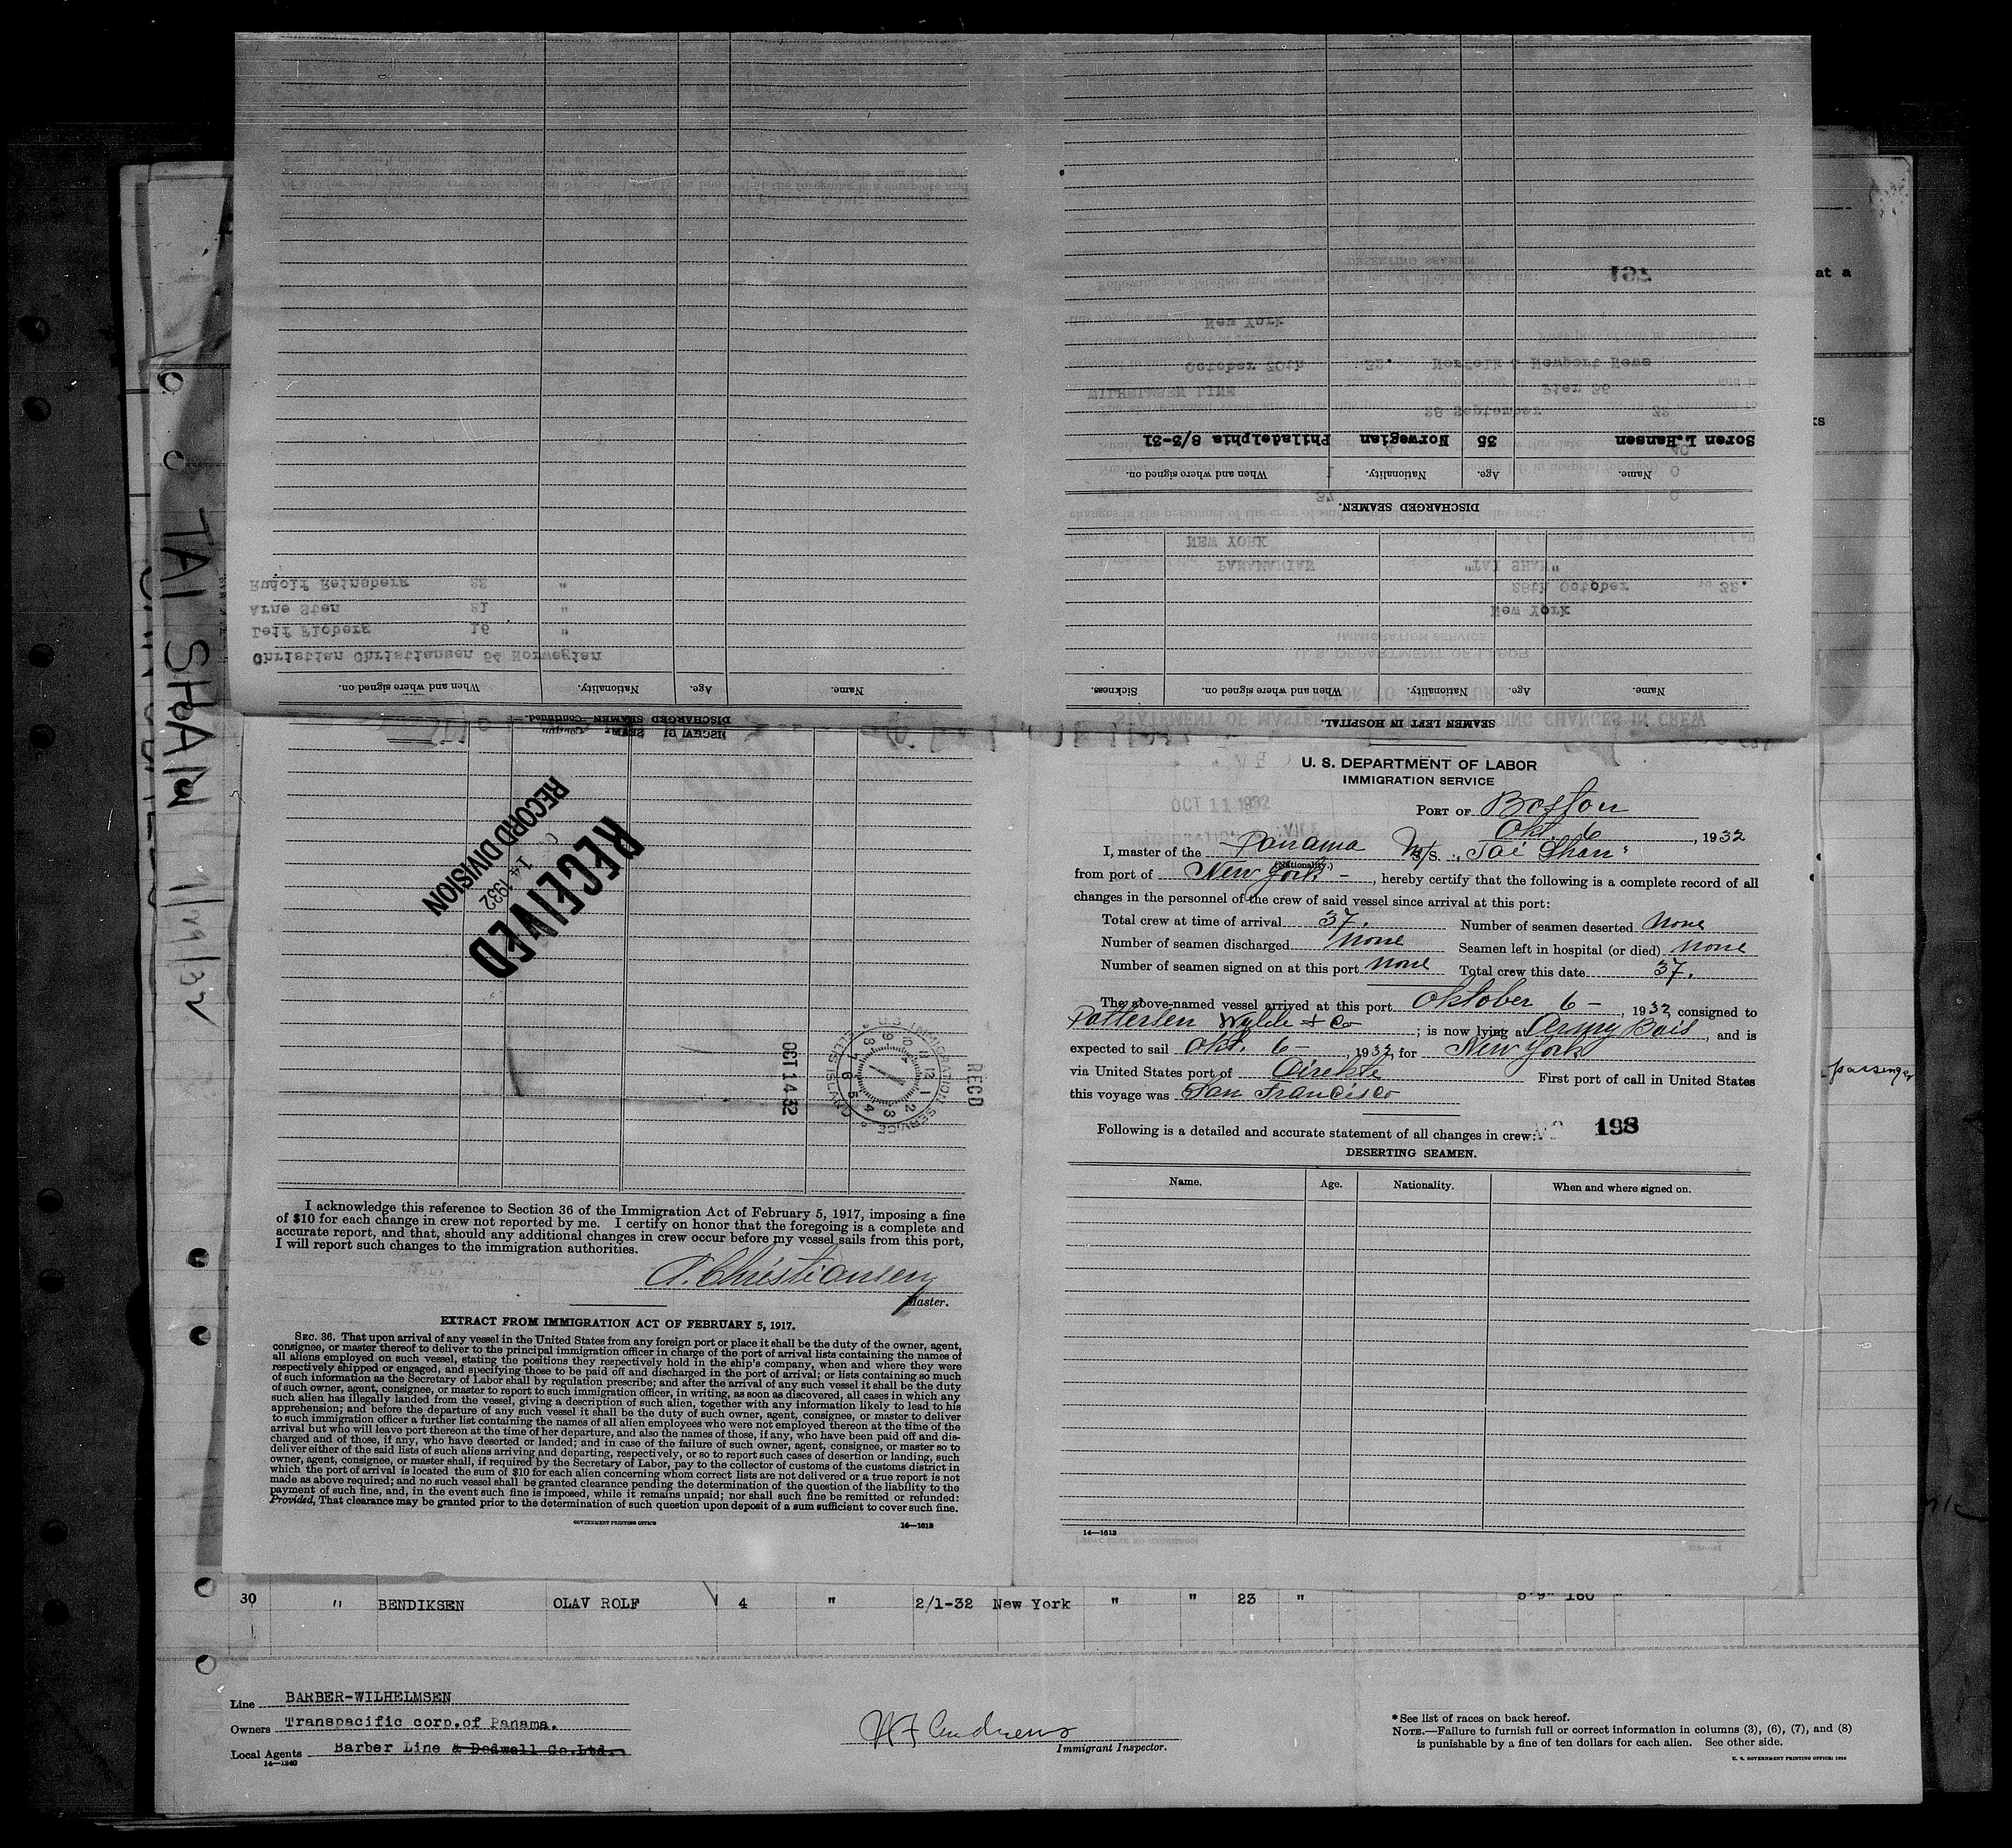 Name.
Age.
Nationality.
When and where signed on.
Christian Christiansen 54 Norwegian
Leif Floberg 16 "
Arne Sten 21 "
Rudolf Reinsberg 22 "
SEAMEN LEFT IN HOSPITAL.
Name.
Age.
Nationality.
When and where signed on.
Sickness.
DISCHARGED SEAMEN.
Name.
Age.
Nationality.
When and where signed on.
Soren L.Hansen 35 Norwegian Philadelphia 8/3-31
New York
28th October 19 32.
PANAMANIAN "TAI SHAN"
NEW YORK
28 September 32
WILHELMSEN LINE Pier 36
October 30th 32. Norfolk & Newport News
New York
197
DISCHARGED SEAMEN—Continued.
TAI SHAN
RECEIVED
14 1932
RECORD DIVISION
REC'D
OCT 14 32
IMMIGRATION SERVICE
ELLIS ISLAND
I acknowledge this reference to Section 36 of the Immigration Act of February 5, 1917, imposing a fine
of $10 for each change in crew not reported by me. I certify on honor that the foregoing is a complete and
accurate report, and that, should any additional changes in crew occur before my vessel sails from this port,
I will report such changes to the immigration authorities.
Christiansen
Master.
EXTRACT FROM IMMIGRATION ACT OF FEBRUARY 5, 1917.
SEC. 36. That upon arrival of any vessel in the United States from any foreign port or place it shall be the duty of the owner, agent,
consignee, or master thereof to deliver to the principal immigration officer in charge of the port of arrival lists containing the names of
all aliens employed on such vessel, stating the positions they respectively hold in the ship's company, when and where they were
respectively shipped or engaged, and specifying those to be paid off and discharged in the port of arrival; or lists containing so much
of such information as the Secretary of Labor shall by regulation prescribe; and after the arrival of any such vessel it shall be the duty
of such owner, agent, consignee, or master to report to such immigration officer, in writing, as soon as discovered, all cases in which any
such alien has illegally landed from the vessel, giving a description of such alien, together with any information likely to lead to his
apprehension; and before the departure of any such vessel it shall be the duty of such owner, agent, consignee, or master to deliver
to such immigration officer a further list containing the names of all alien employees who were not employed thereon at the time of the
arrival but who will leave port thereon at the time of her departure, and also the names of those, if any, who have been paid off and dis-
charged and of those, if any, who have deserted or landed; and in case of the failure of such owner, agent, consignee, or master so to
deliver either of the said lists of such aliens arriving and departing, respectively, or so to report such cases of desertion or landing, such
owner, agent, consignee, or master shall, if required by the Secretary of Labor, pay to the collector of customs of the customs district in
which the port of arrival is located the sum of $10 for each alien concerning whom correct lists are not delivered or a true report is not
made as above required; and no such vessel shall be granted clearance pending the determination of the question of the liability to the
payment of such fine, and, in the event such fine is imposed, while it remains unpaid; nor shall such fine be remitted or refunded:
Provided, That clearance may be granted prior to the determination of such question upon deposit of a sum sufficient to cover such fine.
GOVERNMENT PRINTING OFFICE
14—1613
U. S. DEPARTMENT OF LABOR
IMMIGRATION SERVICE
OCT 11 1932
PORT OF Boston
Okt. 6, 1932
I, master of the Panama M/S. "Tai Shan"
(Nationality.)
from port of New York —, hereby certify that the following is a complete record of all
changes in the personnel of the crew of said vessel since arrival at this port:
Total crew at time of arrival 37. Number of seamen deserted none
Number of seamen discharged none Seamen left in hospital (or died) none
Number of seamen signed on at this port none Total crew this date 37.
The above-named vessel arrived at this port Oktober 6 —, 1932, consigned to
Patterson Wylde & Co; is now lying at Army Bais, and is
expected to sail Okt. 6 —, 1932, for New York
via United States port of Direkte First port of call in United States
this voyage was San Francisco
Following is a detailed and accurate statement of all changes in crew: No 198
DESERTING SEAMEN.
Name.
Age.
Nationality.
When and where signed on.
14—1613
passenger
at a
30 " BENDIKSEN OLAV ROLF 4 " 2/1-32 New York " " 23 "
Line BARBER-WILHELMSEN
Owners Transpacific corp.of Panama.
Local Agents Barber Line & Dodwell Co.Ltd.
14—1240
Andrews
Immigrant Inspector.
*See list of races on back hereof.
NOTE.—Failure to furnish full or correct information in columns (3), (6), (7), and (8)
is punishable by a fine of ten dollars for each alien. See other side.
U. S. GOVERNMENT PRINTING OFFICE: